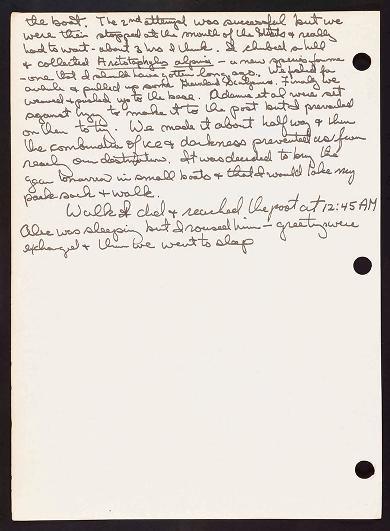 the boat. The 2nd attempt was successful but we
were then stopped at the mouth of the & really
had to wait - about 3 hrs I think. I climbed a hill
& collected Arctostaphylos alpina - a new species for me
- one that I should have gotten long ago. We fished for
awhile & pulled up some Finally we
weaved & pushed up to the base. Adams et al were set
against trying to make it to the post but I prevailed
on them to try. We made it about half way & then
the combination of ice & darkness prevented us from
reaching our destination. It was decided to bring the
gear tomorrow in small boats & that I would take my
pack sack & walk.
Walk I did & reached the post at 12:45 AM
Alec was sleeping but I roused him - greetings were
exchanged & then we went to sleep